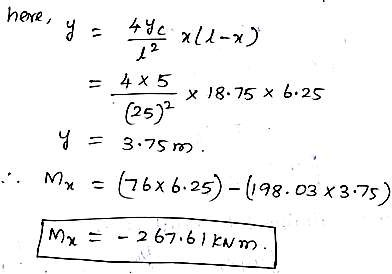 here, y = 4yc/l² x(l-x)
= 4 x 5/(25)² x 18.75 x 6.25
y = 3.75m.
∴ Mx = (76x6.25)-(198.03x3.75)
Mx = - 267.61 KNm.